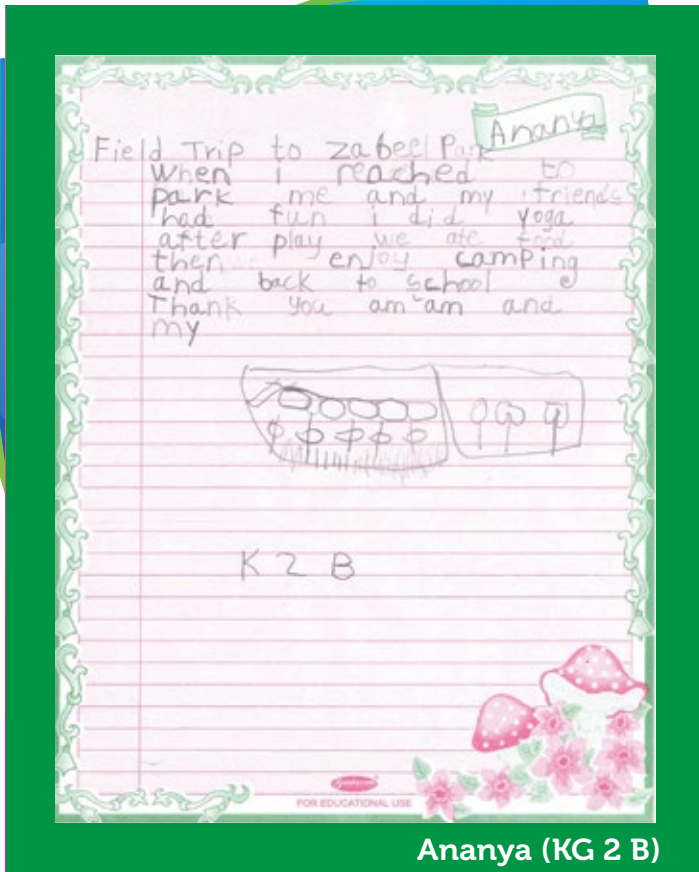 Ananya
Field Trip to zabeel Park
when i reached to
park me and my friends
had fun i did yoga
after play we ate food
then enjoy camping
and back to school
Thank you am'am and
my
K 2 B
FOR EDUCATIONAL USE
Ananya (KG 2 B)